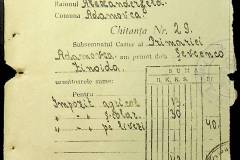 Raionul Alexanderfeld.
Comuna Adamovca
Chitanța Nr. 29.
Subsemnatul Casier al Primăriei
Adamovca am primit dela Sevcenco
Zinoida
SUMA
următoarele sume:
Pentru
Impozit agricol 15.
" " școlar 30
" " pe livezi 40.